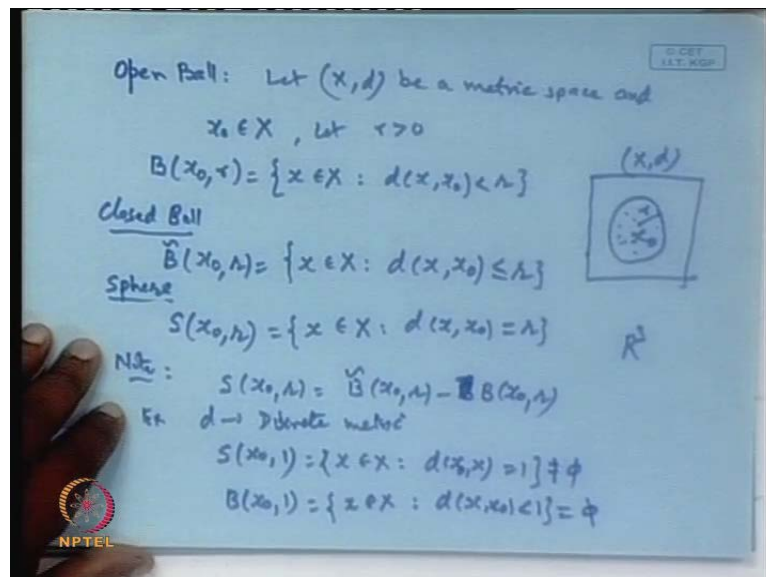 © CET
I.I.T. KGP
Open Ball: Let (X,d) be a metric space and
x₀ ∈ X, Let r>0
B(x₀,r) = {x ∈ X : d(x,x₀) < r}
(X,d)
r
x₀
Closed Ball
B̃(x₀,r) = {x ∈ X : d(x,x₀) ≤ r}
Sphere
S(x₀,r) = {x ∈ X : d(x,x₀) = r}
R³
Note :
S(x₀,r) = B̃(x₀,r) - B(x₀,r)
Ex d → Discrete metric
S(x₀,1) = {x ∈ X : d(x₀,x) = 1} ≠ φ
B(x₀,1) = {x ∈ X : d(x,x₀) < 1} = φ
NPTEL